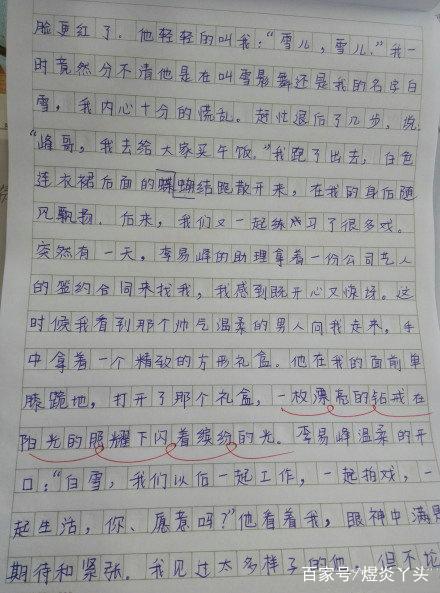 脸更红了。他轻轻的叫我:“雪儿,雪儿。”我一
时竟然分不清他是在叫雪影舞还是我的名字白
雪。我内心十分的慌乱。赶忙退后了几步,说
“峰哥,我去给大家买午饭。”我跑了出去,白色
连衣裙后面的蝴蝶结跑散开来,在我的身后随
风飘扬。后来,我们又一起练习了很多戏。
突然有一天,李易峰的助理拿着一份公司艺人
的签约合同来找我,我感到既开心又惊讶。这
时候我看到那个帅气温柔的男人向我走来,手
中拿着一个精致的方形礼盒。他在我的面前单
膝跪地,打开了那个礼盒,一枚漂亮的钻戒在
阳光的照耀下闪着缤纷的光。李易峰温柔的开
口:“白雪,我们以后一起工作,一起拍戏,一
起生活,你、愿意吗?”他看着我,眼神中满是
期待和紧张。我见过太多样子的他,但不论
百家号/煜炎丫头